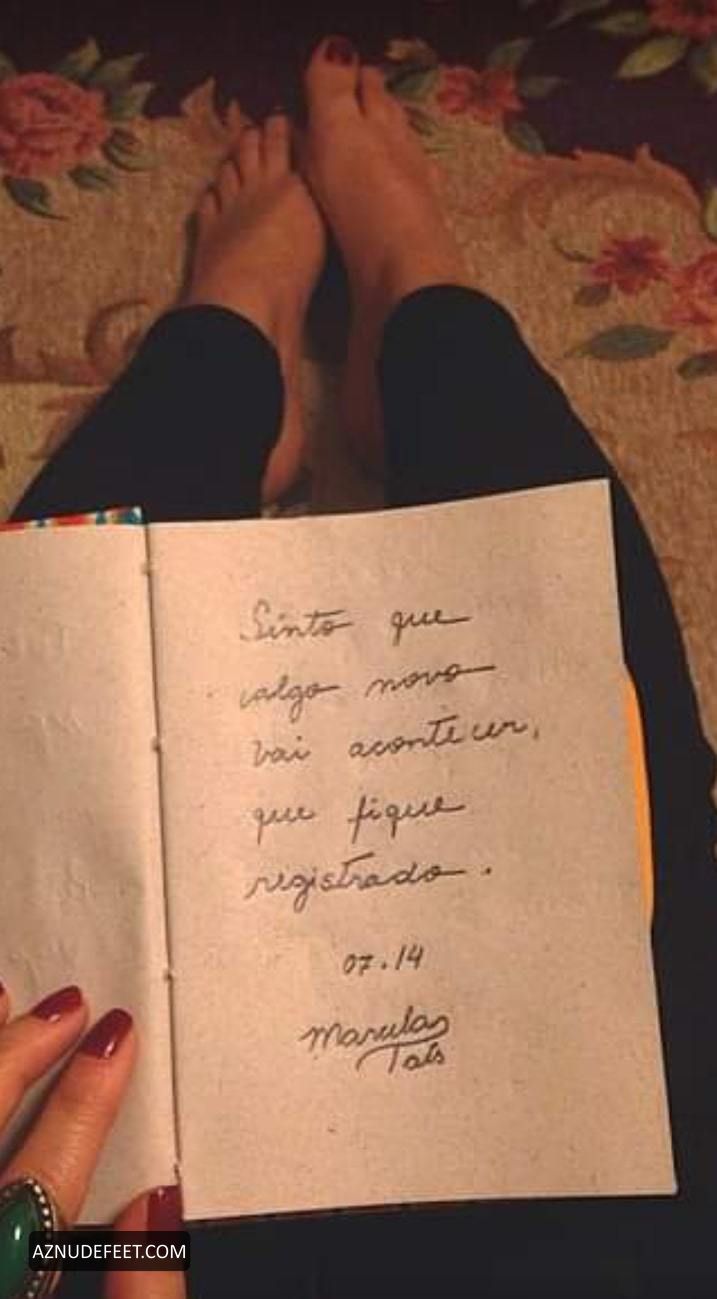 Sinto que
algo novo
vai acontecer,
que fique
registrado.
07.14
Tais
AZNUDEFEET.COM